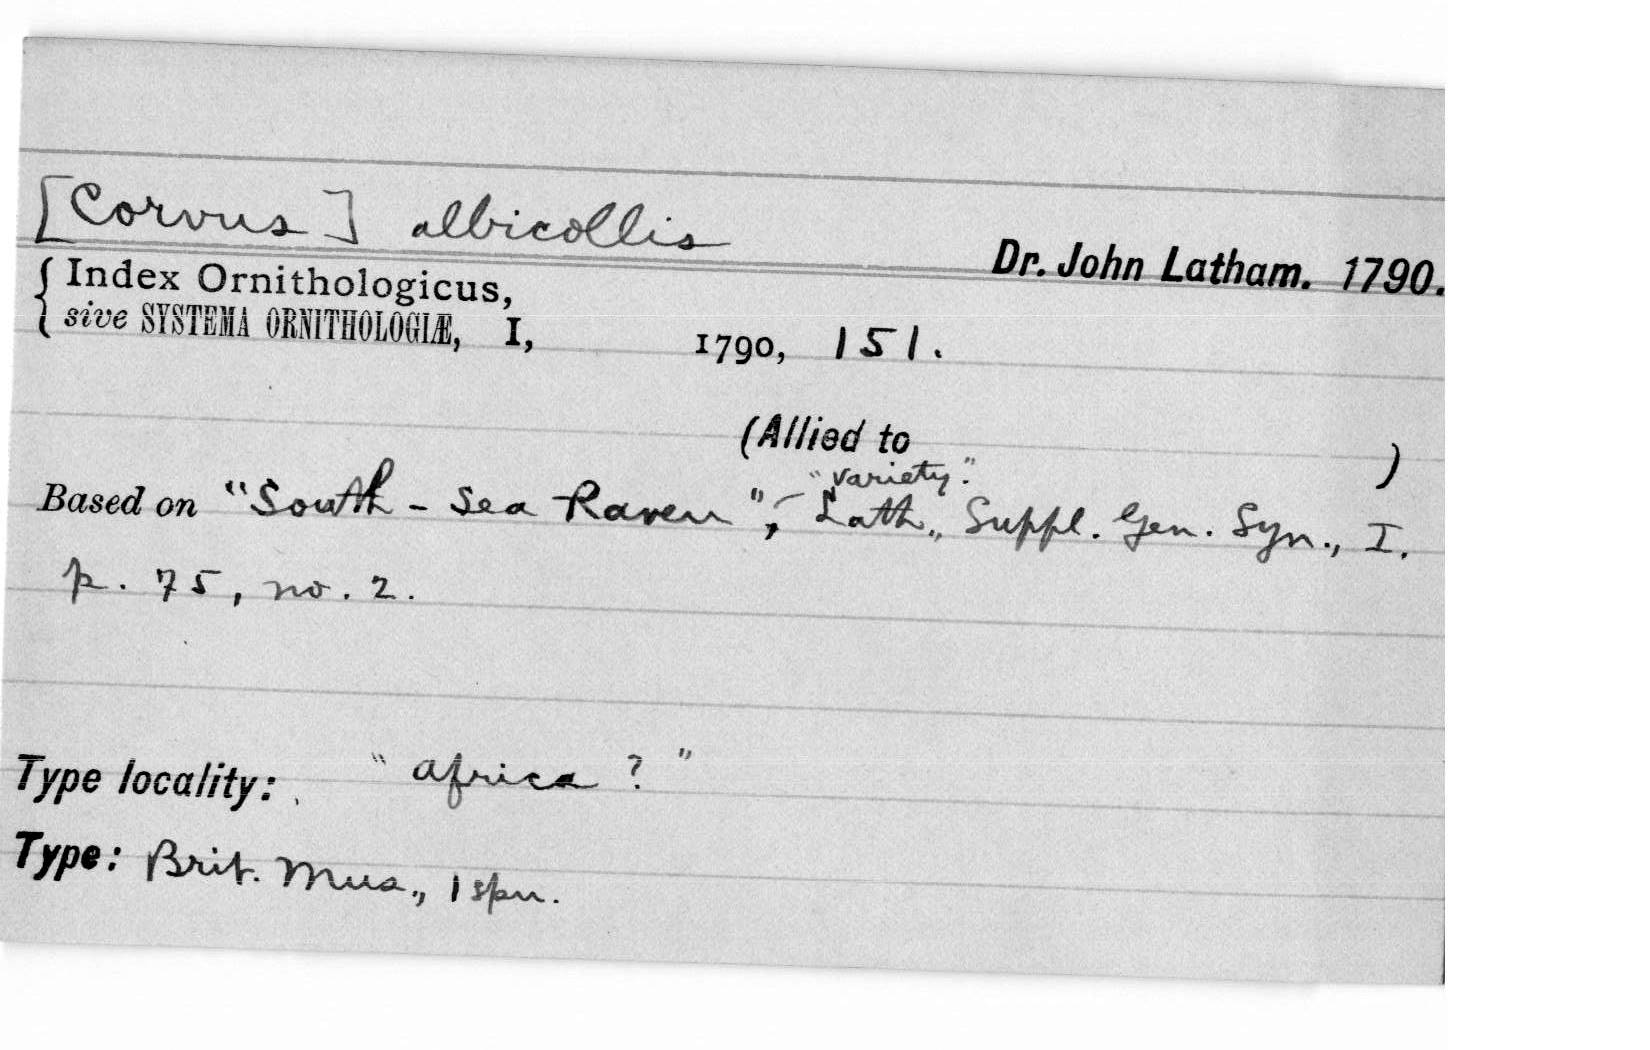 [Corvus] albicollis
Dr. John Latham. 1790.
{ Index Ornithologicus,
sive SYSTEMA ORNITHOLOGIÆ, I, 1790, 151.
(Allied to )
"variety."
Based on "South-Sea Raven", Lath., Suppl. Gen. Syn., I.
p. 75, no. 2.
Type locality: "Africa ?"
Type: Brit. Mus., 1 spn.